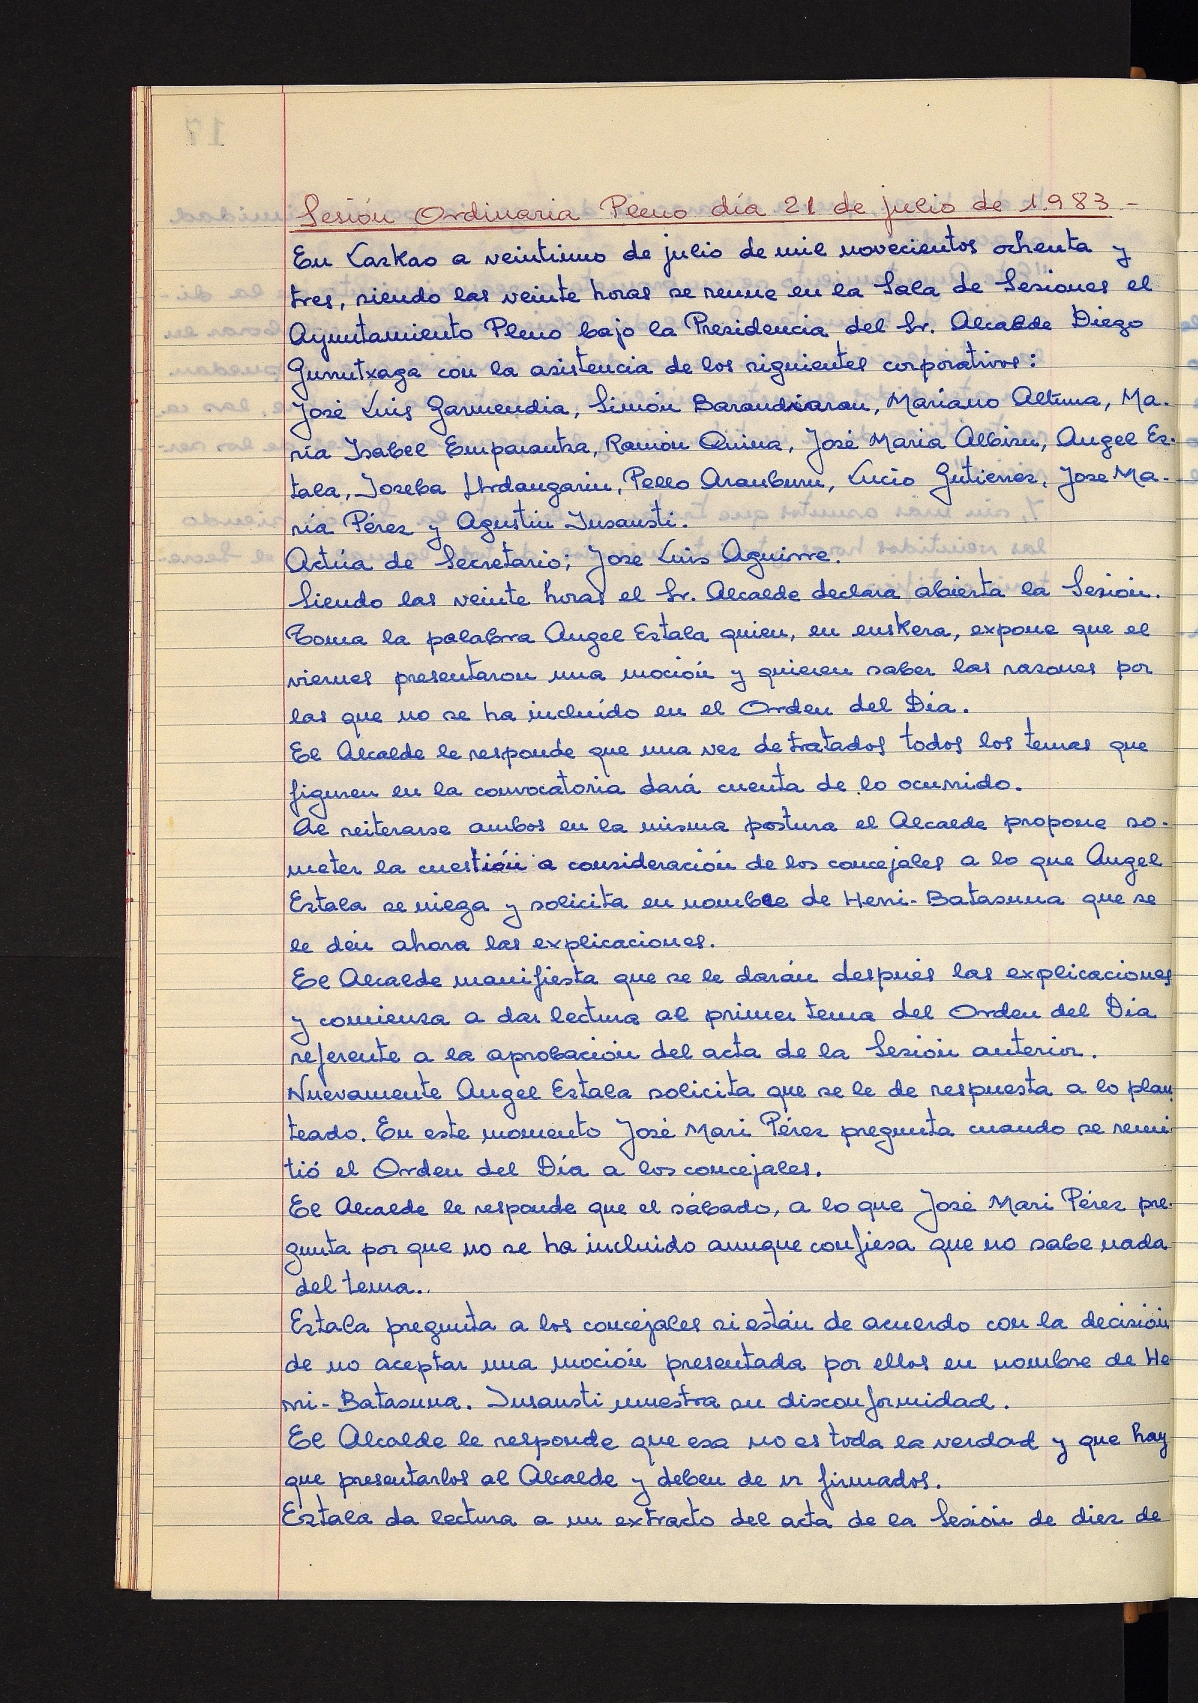 Sesión Ordinaria Pleno día 21 de julio de 1.983.-
En Lazkao a veintiuno de julio de mil novecientos ochenta y
tres, siendo las veinte horas se reune en la Sala de Sesiones el
Ayuntamiento Pleno bajo la Presidencia del Sr. Alcalde Diego
Gurrutxaga con la asistencia de los siguientes corporativos:
José Luis Garmendia, Simón Barandiaran, Mariano Altuna, Ma-
ría Isabel Emparantza, Ramón Quina, José Maria Albisu, Angel Es-
tala, Joseba Urdangarin, Pello Aranburu, Lucio Gutierrez, Jose Ma-
ría Pérez y Agustín Insausti.
Actúa de Secretario; Jose Luis Aguirre.
Siendo las veinte horas el Sr. Alcalde declara abierta la Sesión.
Toma la palabra Angel Estala quien, en euskera, expone que el
viernes presentaron una moción y quieren saber las razones por
las que no se ha incluído en el Orden del Día.
El Alcalde le responde que una vez de tratados todos los temas que
figuren en la convocatoria dará cuenta de lo ocurrido.
Al reiterarse ambos en la misma postura el Alcalde propone so-
meter la cuestión a consideración de los concejales a lo que Angel
Estala se niega y solicita en nombre de Herri-Batasuna que se
le den ahora las explicaciones.
El Alcalde manifiesta que se le darán después las explicaciones
y comienza a dar lectura al primer tema del Orden del Día
referente a la aprobación del acta de la Sesión anterior.
Nuevamente Angel Estala solicita que se le de respuesta a lo plan
teado. En este momento José Mari Pérez pregunta cuando se remi-
tió el Orden del Día a los concejales.
El Alcalde le responde que el sábado, a lo que José Mari Pérez pre-
gunta por que no se ha incluido aunque confiesa que no sabe nada
del tema..
Estala pregunta a los concejales si están de acuerdo con la decisión
de no aceptar una moción presentada por ellos en nombre de He
rri-Batasuna. Insausti muestra su disconformidad.
El Alcalde le responde que esa no es toda la verdad y que hay
que presentarlos al Alcalde y deben de ir firmados.
Estala da lectura a un extracto del acta de la Sesión de diez de